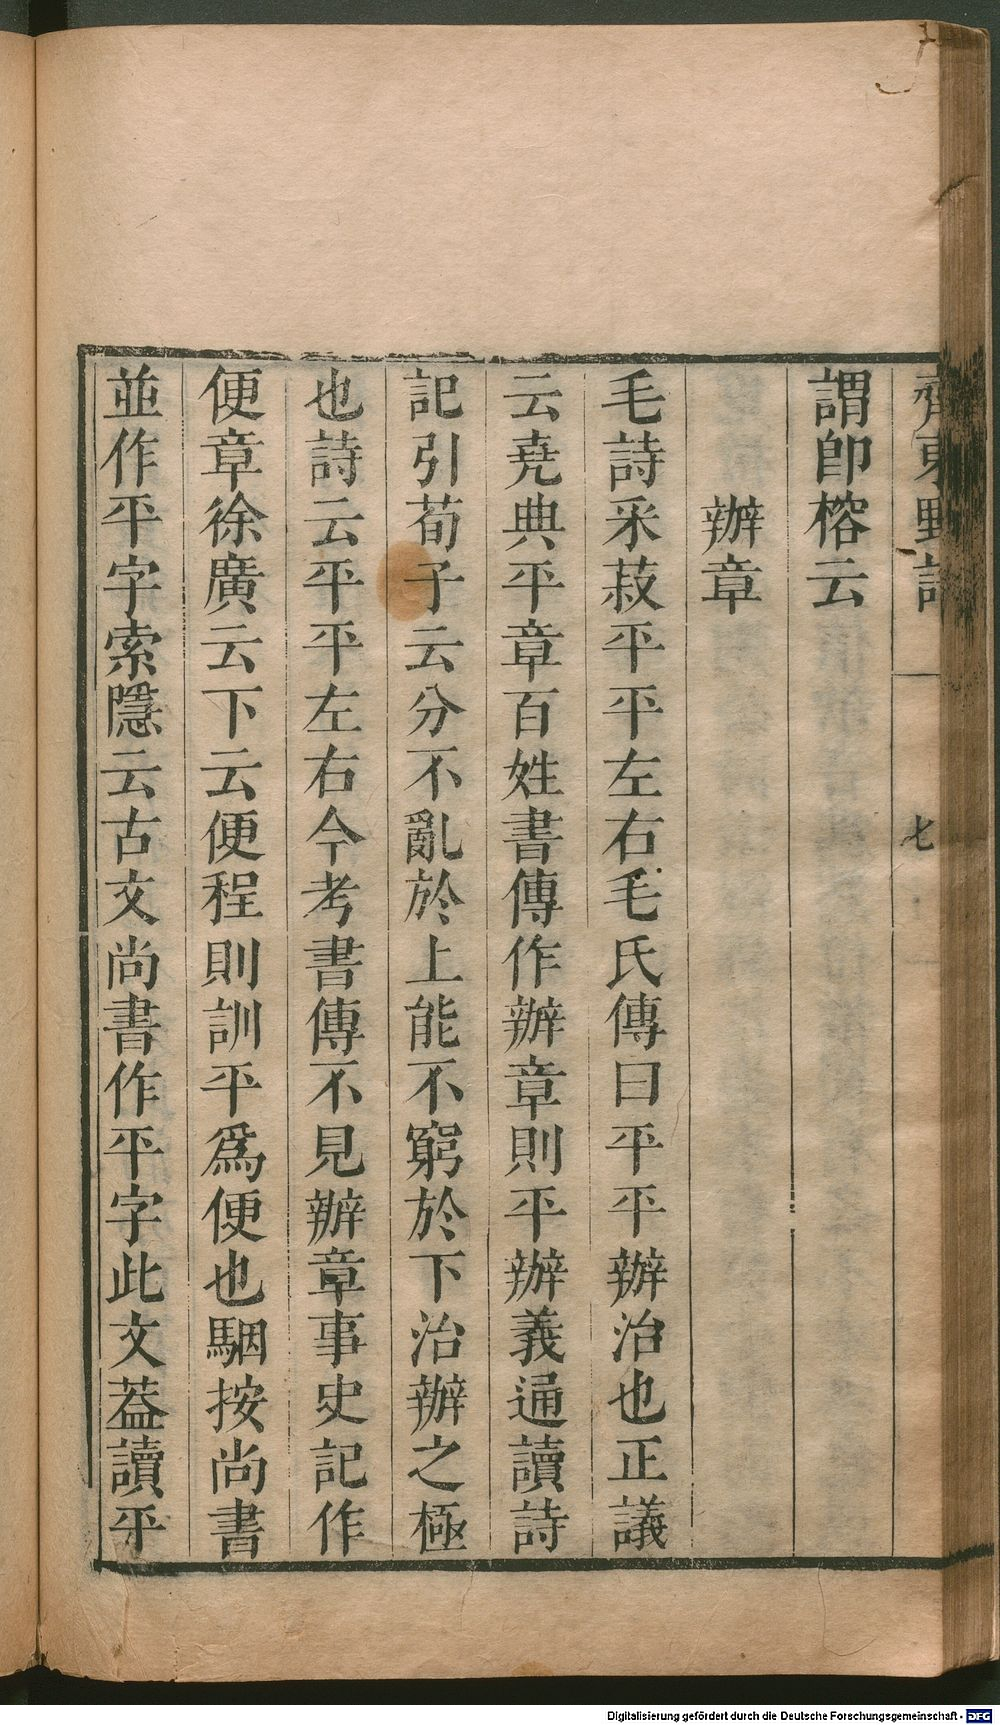 齊東野語
七
謂卽榕云
辦章
毛詩采菽平平左右毛氏傳曰平平辦治也正議
云堯典平章百姓書傳作辦章則平辦義通讀詩
記引荀子云分不亂於上能不窮於下治辦之極
也詩云平平左右今考書傳不見辦章事史記作
便章徐廣云下云便程則訓平爲便也駰按尚書
並作平字索隱云古文尚書作平字此文葢讀平
Digitalisierung gefördert durch die Deutsche Forschungsgemeinschaft - DFG